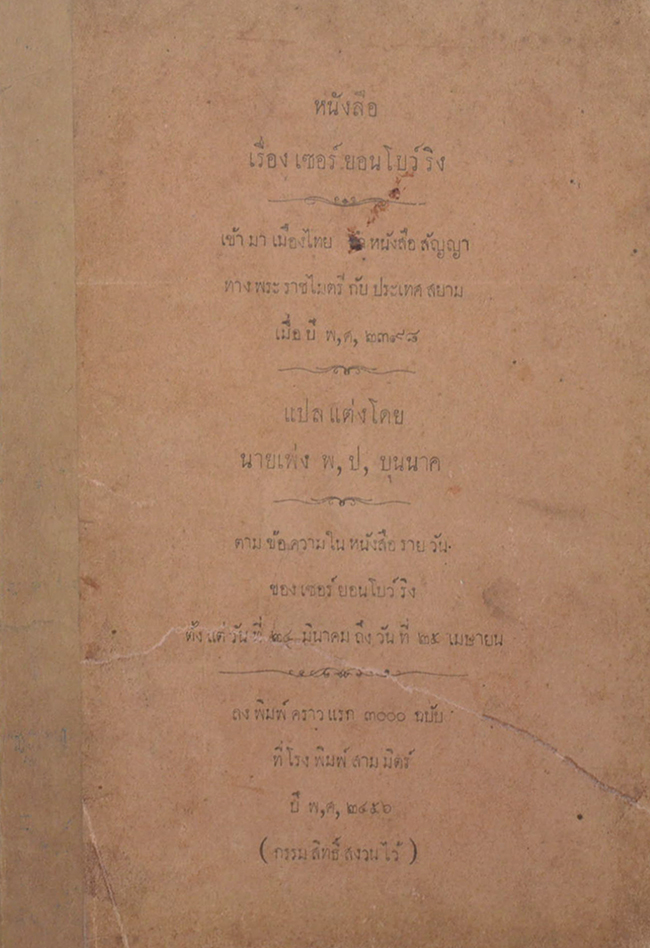 หนังสือ
เรื่อง เซอร์ ยอน โบว์ ริง
เข้า มา เมืองไทย หนังสือ สัญญา
ทาง พระ ราชไมตรี กับ ประเทศ สยาม
เมื่อ ปี พ, ศ, ๒๓๙๘
แปล แต่งโดย
นายเพ่ง พ, ป, บุนนาค
ตาม ข้อความใน หนังสือ ราย วัน
ของ เซอร์ ยอนโบว์ ริง
ตั้ง แต่ วัน ที่ ๒๔ มีนาคม ถึง วัน ที่ ๒๕ เมษายน
ลง พิมพ์ คราว แรก ๓๐๐๐ ฉบับ
ที่ โรง พิมพ์ สาม มิตร์
ปี พ,ศ, ๒๔๕๖
( กรรม สิทธิ์ สงวน ไว้ )